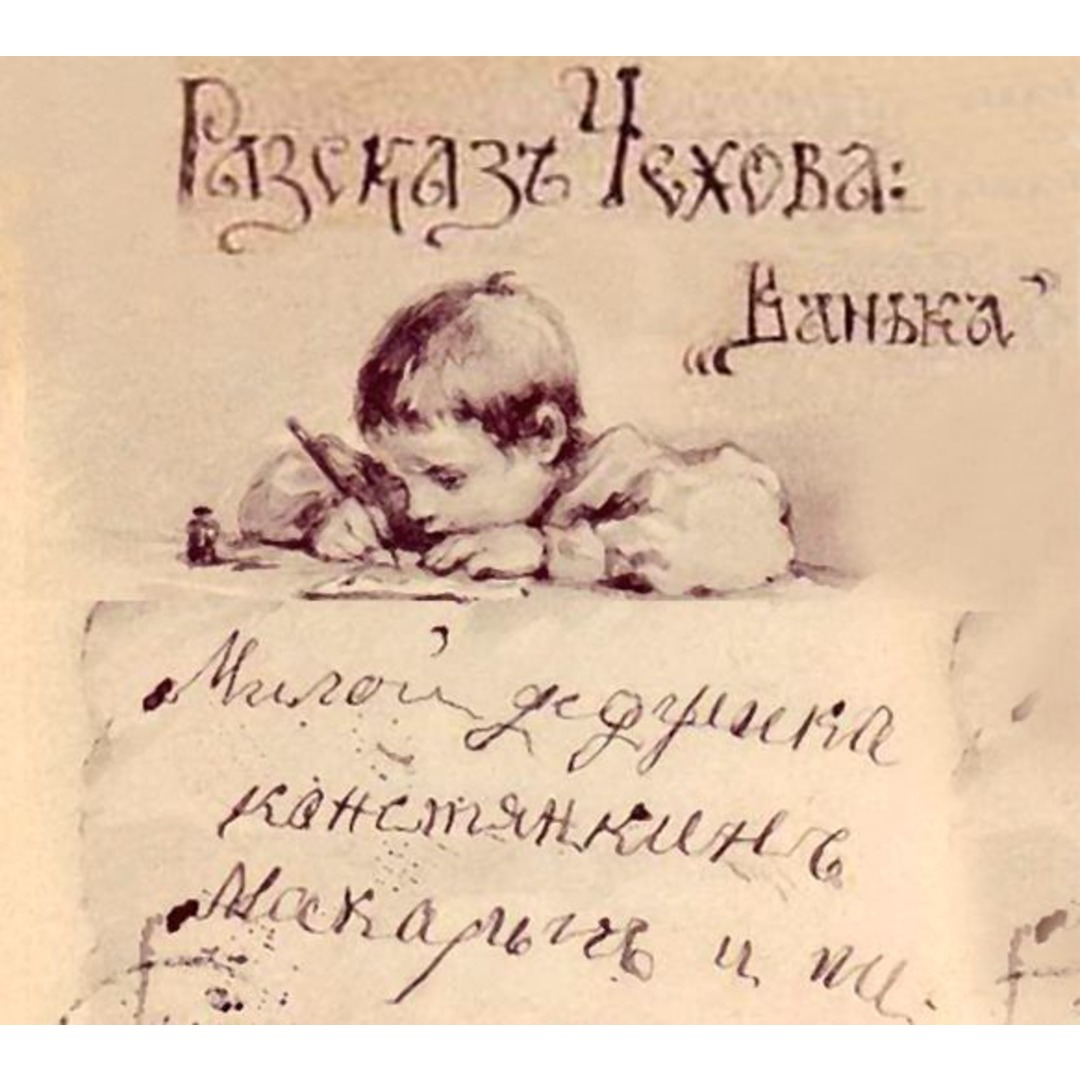 Разсказъ Чехова:
„Ванька”
Милой дедушка
констянкинъ
Макарычъ и пи-